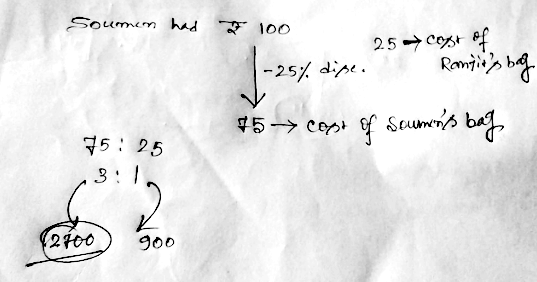 Soumen had ₹ 100
-25% disc.
25 → cost of
Ranjit's bag
75 → cost of Soumen's bag
75 : 25
3 : 1
2700 900